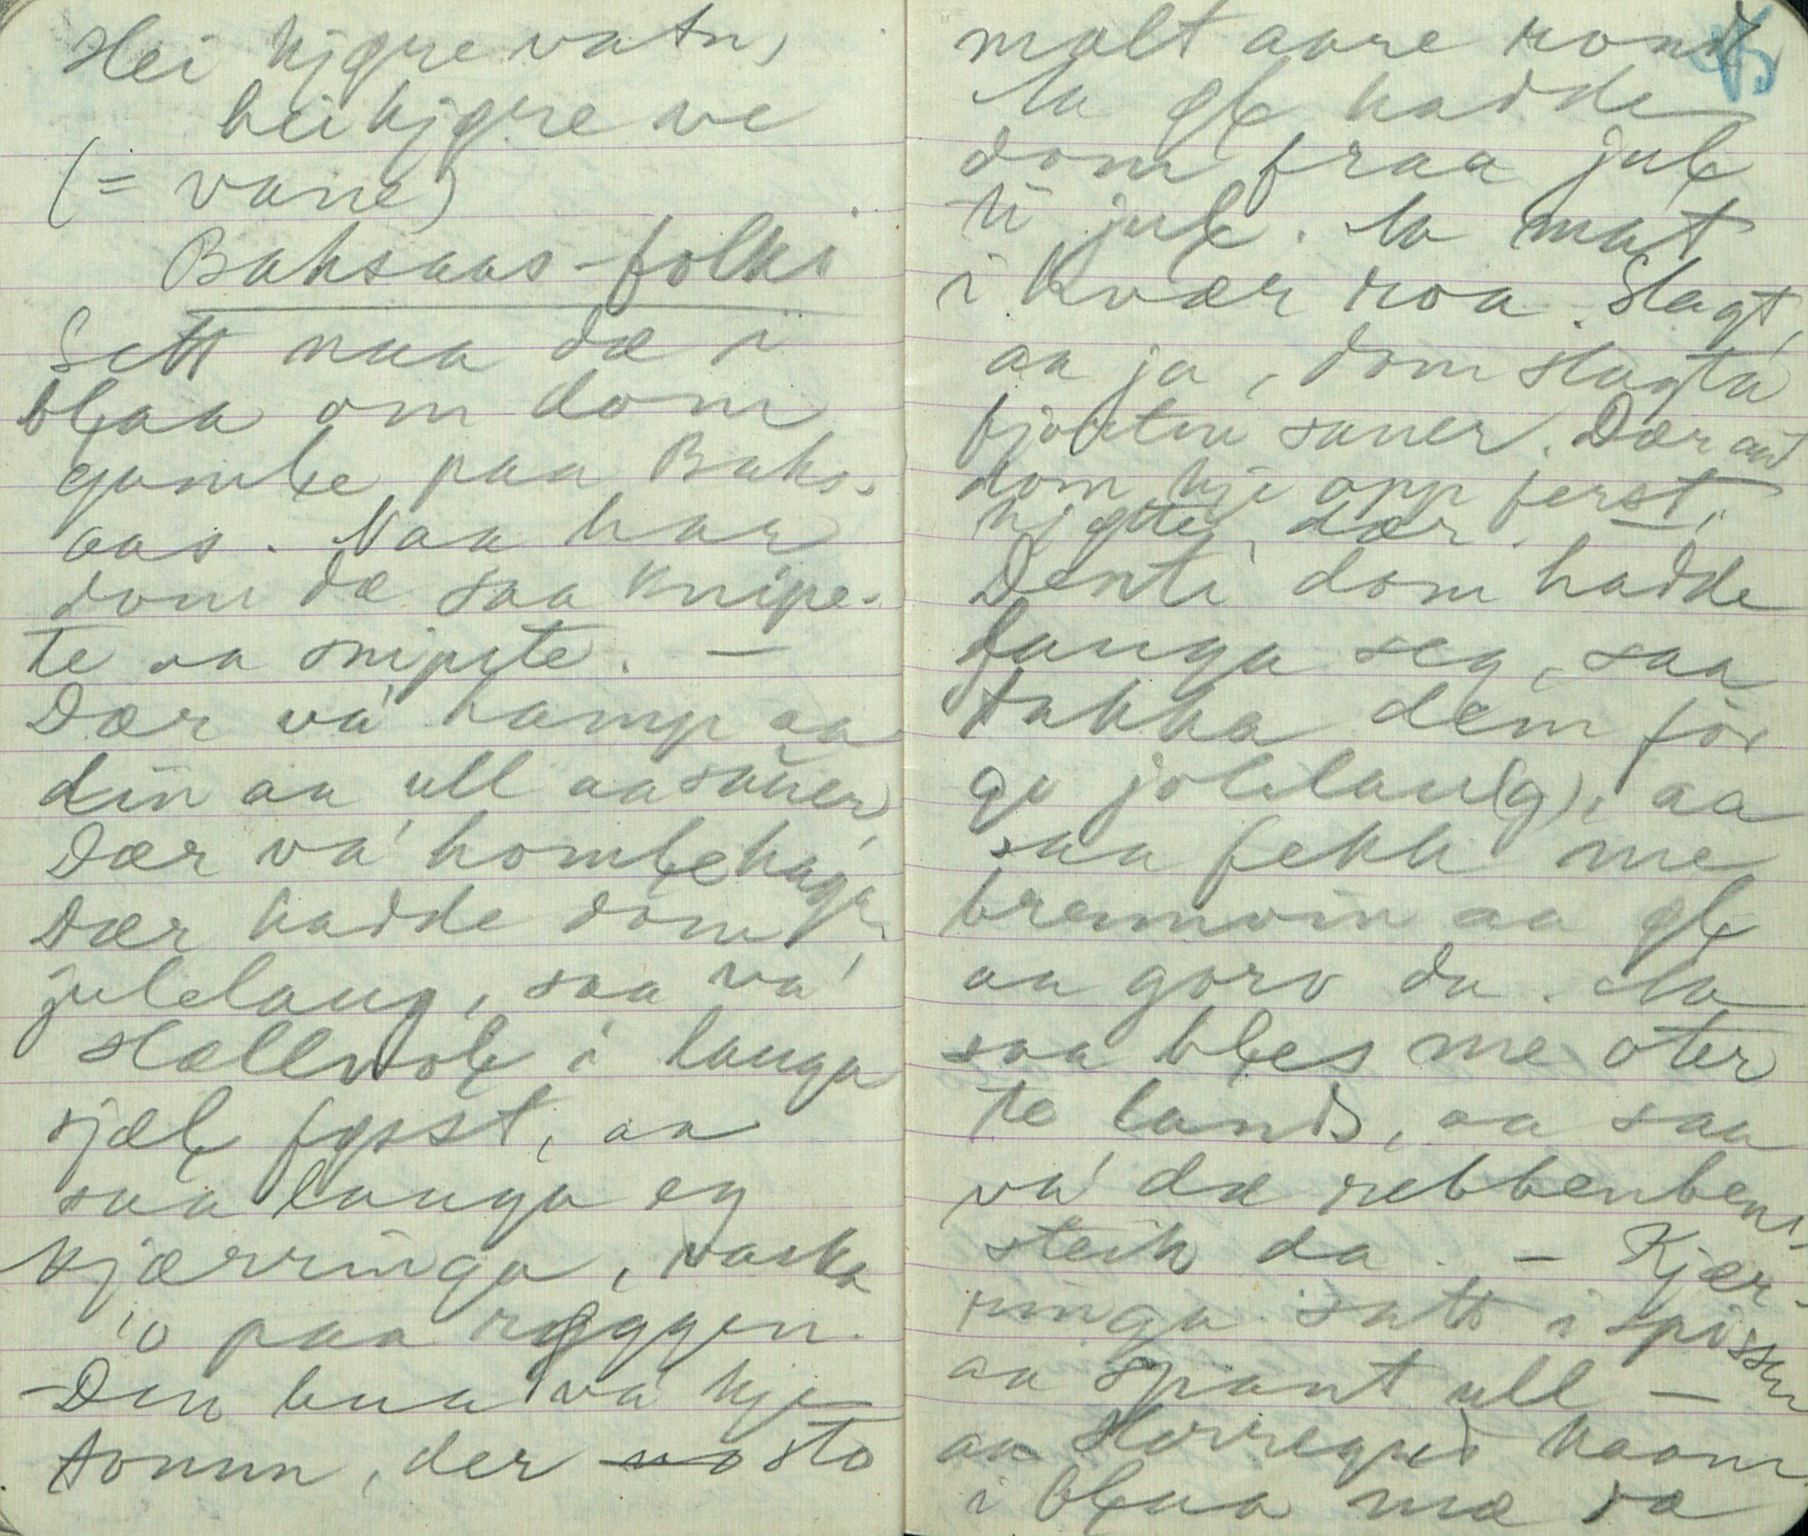 Hei kjøre vatn,
hei kjøre ve
(= vane)
Baksaas-folki
Sett naa dæ i
blaa om dom
gamle paa Baks-
aas. Naa har
dom dæ saa knipe-
te aa snipete. —
Dær va' hamp aa
lin aa ull aa sauer,
Dær va' homlehage,
Dær hadde dom
julelaug, saa va'
Hallvol i lauga
sjæl fysst, aa
saa lauga eg
kjærringa, vaska
'o paa ryggen.
– Den bua va kje
tomm, der sto
malt aare rondt
Aa øl hadde
dom fraa jul
ti jul. Aa mat
i kvær roa. Slagt,
aa ja, dom slagta
fjorten sauer. Dær aat
dom kje opp ferst,
kjøtte, dær. —
Denti dom hadde
lauga seg, saa
takka dem for
go jolelau(g), aa
saa fekk me
brennvin aa øl
aa gorv da. Aa
saa bles me oter
te lands, aa saa
va' dæ rebbenbens-
steik da. – Kjær-
ringa satt i spissen
aa spant ull —
aa Herregud kaam
i blaa mæ dæ